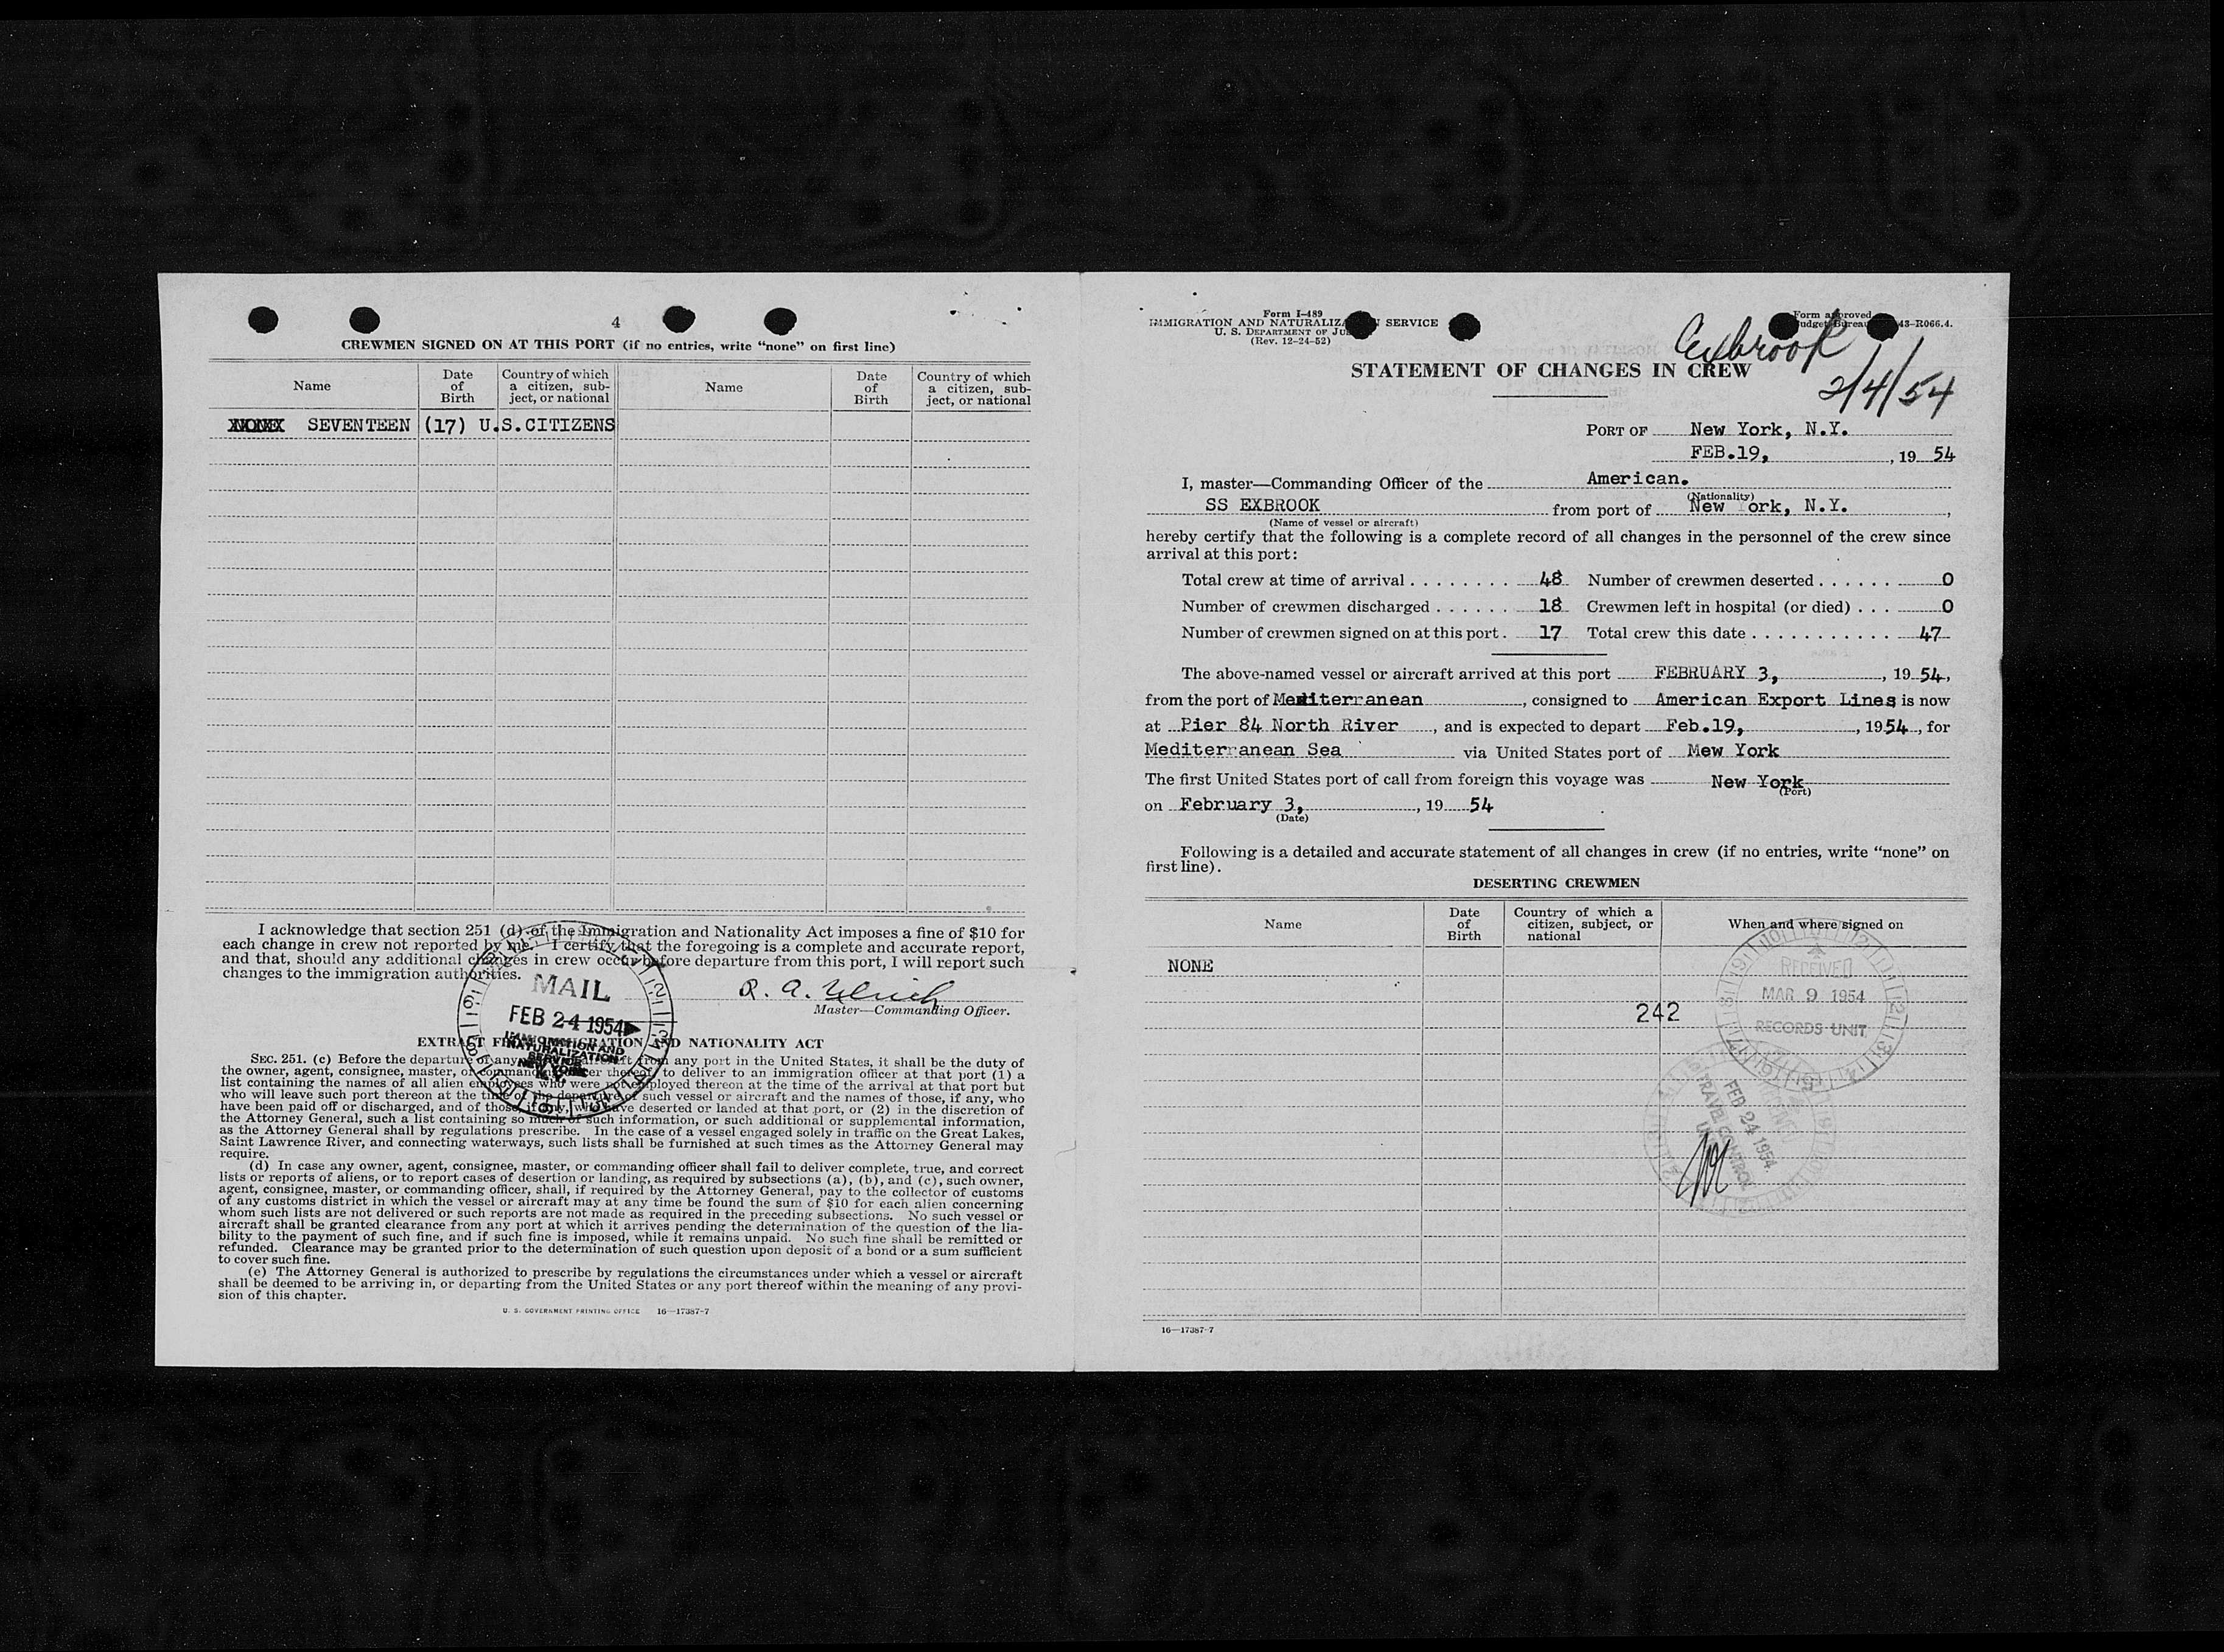 4
CREWMEN SIGNED ON AT THIS PORT (if no entries, write “none” on first line)
Name
Date of Birth
Country of which a citizen, subject, or national
Name
Date of Birth
Country of which a citizen, subject, or national
SEVENTEEN (17) U.S.CITIZENS
I acknowledge that section 251 (d) of the Immigration and Nationality Act imposes a fine of $10 for
each change in crew not reported by me. I certify that the foregoing is a complete and accurate report,
and that, should any additional changes in crew occur before departure from this port, I will report such
changes to the immigration authorities.
R. A. Ulrich
Master—Commanding Officer.
MAIL
FEB 24 1954
IMMIGRATION AND
NATURALIZATION
SERVICE
NEW YORK
N.Y.
EXTRACT FROM IMMIGRATION AND NATIONALITY ACT
SEC. 251. (c) Before the departure of any vessel or aircraft from any port in the United States, it shall be the duty of
the owner, agent, consignee, master, or commanding officer thereof to deliver to an immigration officer at that port (1) a
list containing the names of all alien employees who were not employed thereon at the time of the arrival at that port but
who will leave such port thereon at the time of the departure of such vessel or aircraft and the names of those, if any, who
have been paid off or discharged, and of those, if any, who have deserted or landed at that port, or (2) in the discretion of
the Attorney General, such a list containing so much of such information, or such additional or supplemental information,
as the Attorney General shall by regulations prescribe. In the case of a vessel engaged solely in traffic on the Great Lakes,
Saint Lawrence River, and connecting waterways, such lists shall be furnished at such times as the Attorney General may
require.
(d) In case any owner, agent, consignee, master, or commanding officer shall fail to deliver complete, true, and correct
lists or reports of aliens, or to report cases of desertion or landing, as required by subsections (a), (b), and (c), such owner,
agent, consignee, master, or commanding officer, shall, if required by the Attorney General, pay to the collector of customs
of any customs district in which the vessel or aircraft may at any time be found the sum of $10 for each alien concerning
whom such lists are not delivered or such reports are not made as required in the preceding subsections. No such vessel or
aircraft shall be granted clearance from any port at which it arrives pending the determination of the question of the lia-
bility to the payment of such fine, and if such fine is imposed, while it remains unpaid. No such fine shall be remitted or
refunded. Clearance may be granted prior to the determination of such question upon deposit of a bond or a sum sufficient
to cover such fine.
(e) The Attorney General is authorized to prescribe by regulations the circumstances under which a vessel or aircraft
shall be deemed to be arriving in, or departing from the United States or any port thereof within the meaning of any provi-
sion of this chapter.
U. S. GOVERNMENT PRINTING OFFICE 16—17387-7
Form I-489
IMMIGRATION AND NATURALIZATION SERVICE
U. S. DEPARTMENT OF JUSTICE
(Rev. 12-24-52)
Form approved
Budget Bureau 43-R066.4.
Exbrook
2/4/54
STATEMENT OF CHANGES IN CREW
PORT OF New York, N.Y.
FEB.19, , 19 54
I, master—Commanding Officer of the American.
(Nationality)
SS EXBROOK from port of New ork, N.Y. ,
(Name of vessel or aircraft)
hereby certify that the following is a complete record of all changes in the personnel of the crew since
arrival at this port:
Total crew at time of arrival . . . . . . . . 48 Number of crewmen deserted . . . . . . 0
Number of crewmen discharged . . . . . . 18 Crewmen left in hospital (or died) . . . 0
Number of crewmen signed on at this port . 17 Total crew this date . . . . . . . . . . . 47
The above-named vessel or aircraft arrived at this port FEBRUARY 3, , 19 54,
from the port of Mediterranean , consigned to American Export Lines is now
at Pier 84 North River , and is expected to depart Feb.19, , 1954 , for
Mediterranean Sea via United States port of Mew York
The first United States port of call from foreign this voyage was New York
(Port)
on February 3, , 19 54
(Date)
Following is a detailed and accurate statement of all changes in crew (if no entries, write “none” on
first line).
DESERTING CREWMEN
Name
Date of Birth
Country of which a citizen, subject, or national
When and where signed on
NONE
242
RECEIVED
MAR 9 1954
RECORDS UNIT
FEB 24 1954
TRAVEL CONTROL
16—17387-7